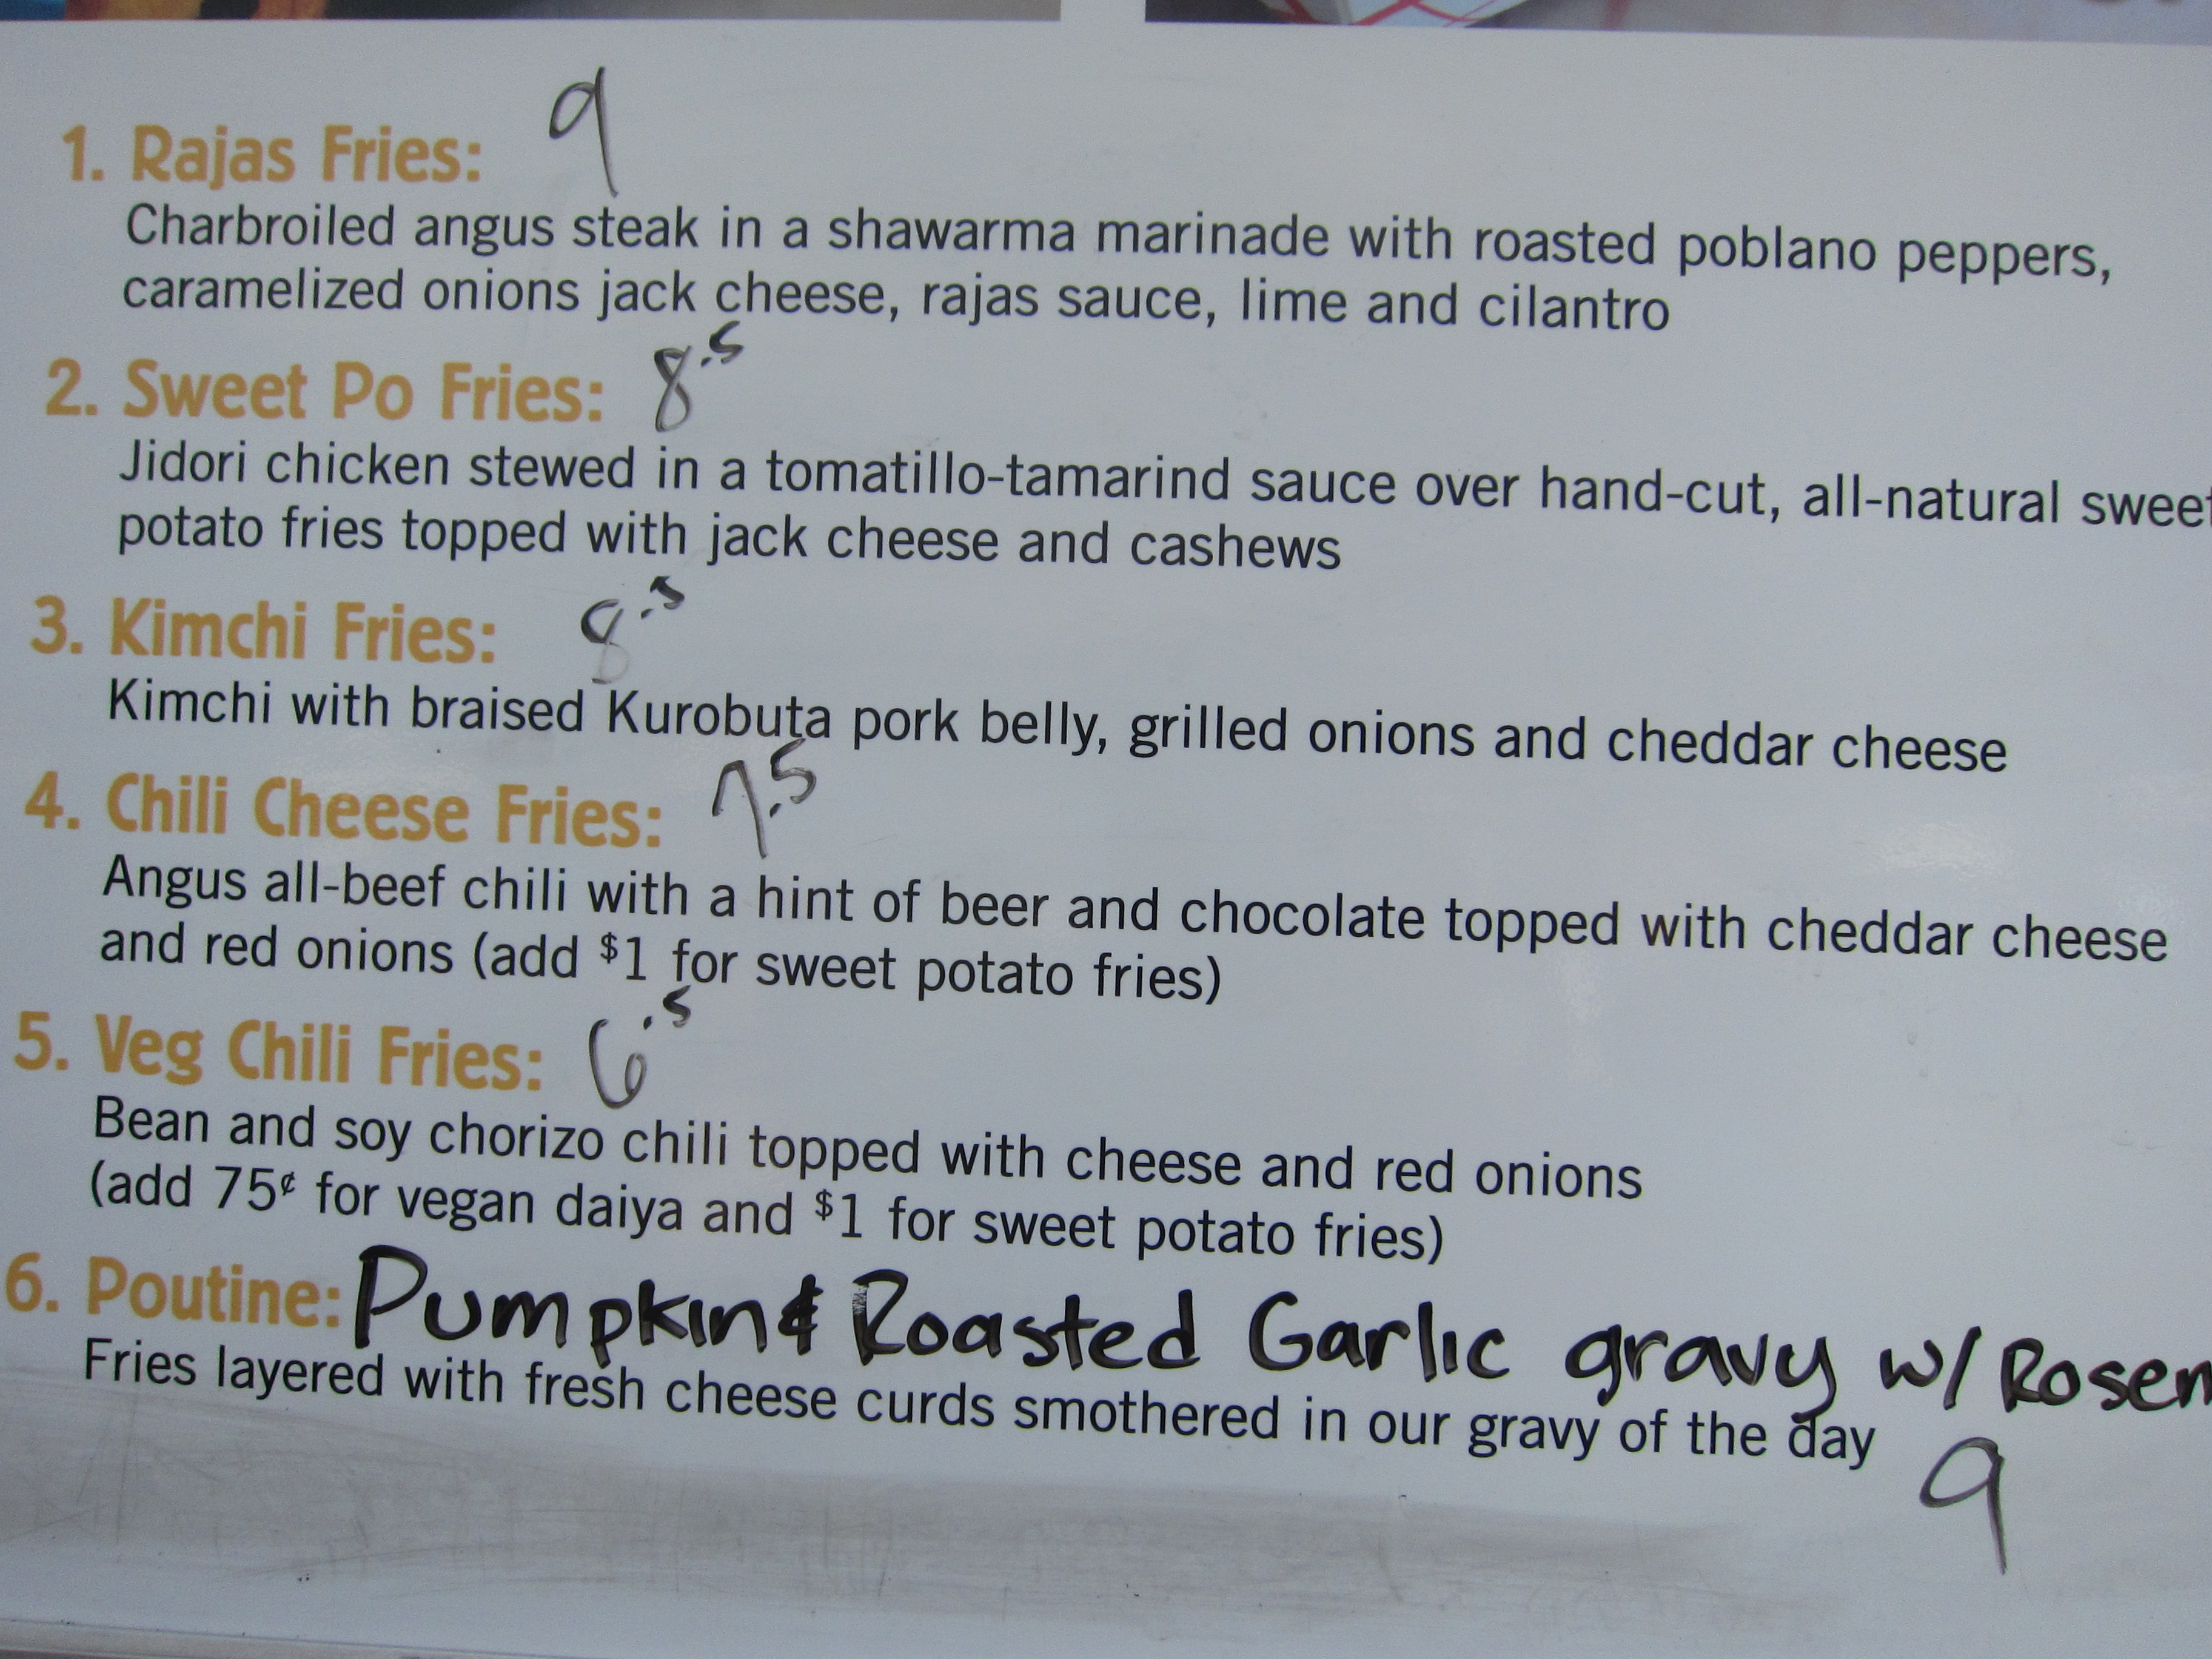 1. Rajas Fries: 9
Charbroiled angus steak in a shawarma marinade with roasted poblano peppers,
caramelized onions jack cheese, rajas sauce, lime and cilantro
2. Sweet Po Fries: 8.5
Jidori chicken stewed in a tomatillo-tamarind sauce over hand-cut, all-natural sweet
potato fries topped with jack cheese and cashews
3. Kimchi Fries: 8.5
Kimchi with braised Kurobuta pork belly, grilled onions and cheddar cheese
4. Chili Cheese Fries: 7.5
Angus all-beef chili with a hint of beer and chocolate topped with cheddar cheese
and red onions (add $1 for sweet potato fries)
5. Veg Chili Fries: 6.5
Bean and soy chorizo chili topped with cheese and red onions
(add 75¢ for vegan daiya and $1 for sweet potato fries)
6. Poutine: Pumpkin & Roasted Garlic gravy w/
Fries layered with fresh cheese curds smothered in our gravy of the day
9